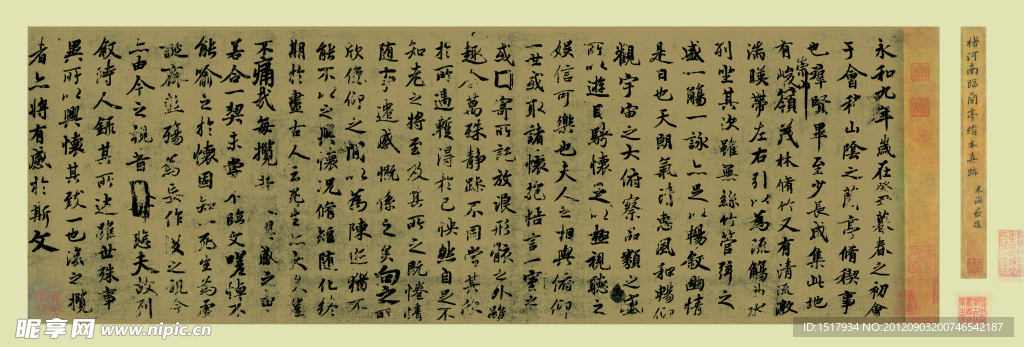 永和九年歲在癸丑暮春之初會
于會稽山陰之蘭亭脩稧事
也群賢畢至少長咸集此地
有崇山峻領茂林脩竹又有清流激
湍暎帶左右引以為流觴曲水
列坐其次雖無絲竹管弦之
盛一觴一詠亦足以暢敘幽情
是日也天朗氣清惠風和暢仰
觀宇宙之大俯察品類之盛
所以遊目騁懷足以極視聽之
娛信可樂也夫人之相與俯仰
一世或取諸懷抱悟言一室之
或寄所託放浪形骸之外雖
趣舍萬殊靜躁不同當其欣
於所遇暫得於己怏然自足不
知老之將至及其所之既惓情
隨事遷感慨係之矣向之所
欣俛仰之間以為陳迹猶不
能不以之興懷況脩短隨化終
期於盡古人云死生亦大矣豈
不痛哉每攬感之由
若合一契未嘗不臨文嗟悼不
能喻之於懷固知一死生為虛
誕齊彭殤為妄作後之視今
亦由今之視昔悲夫故列
敘時人錄其所述雖世殊事
異所以興懷其致一也後之攬
者亦將有感於斯文
褚河南臨蘭亭絹本真跡
昵享网 www.nipic.cn
ID:1517934 NO:20120903200746542187